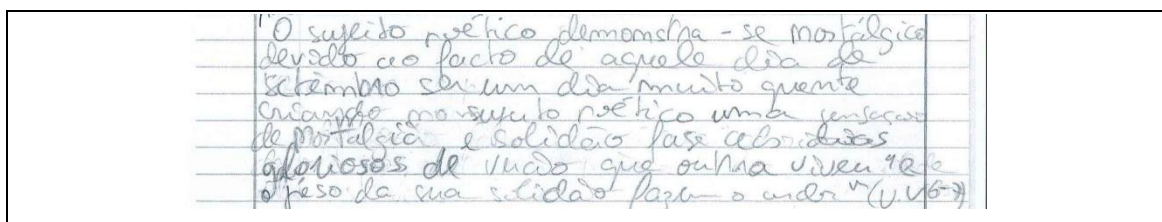 O sujeito poético demonstra-se nostálgico
devido ao facto de aquele dia de
setembro ser um dia muito quente
criando no sujeito poético uma sensação
de nostalgia e solidão face aos dias
gloriosos de verão que outrora viveu "e
o peso da sua solidão fazem o andar" (v.v 6-7)